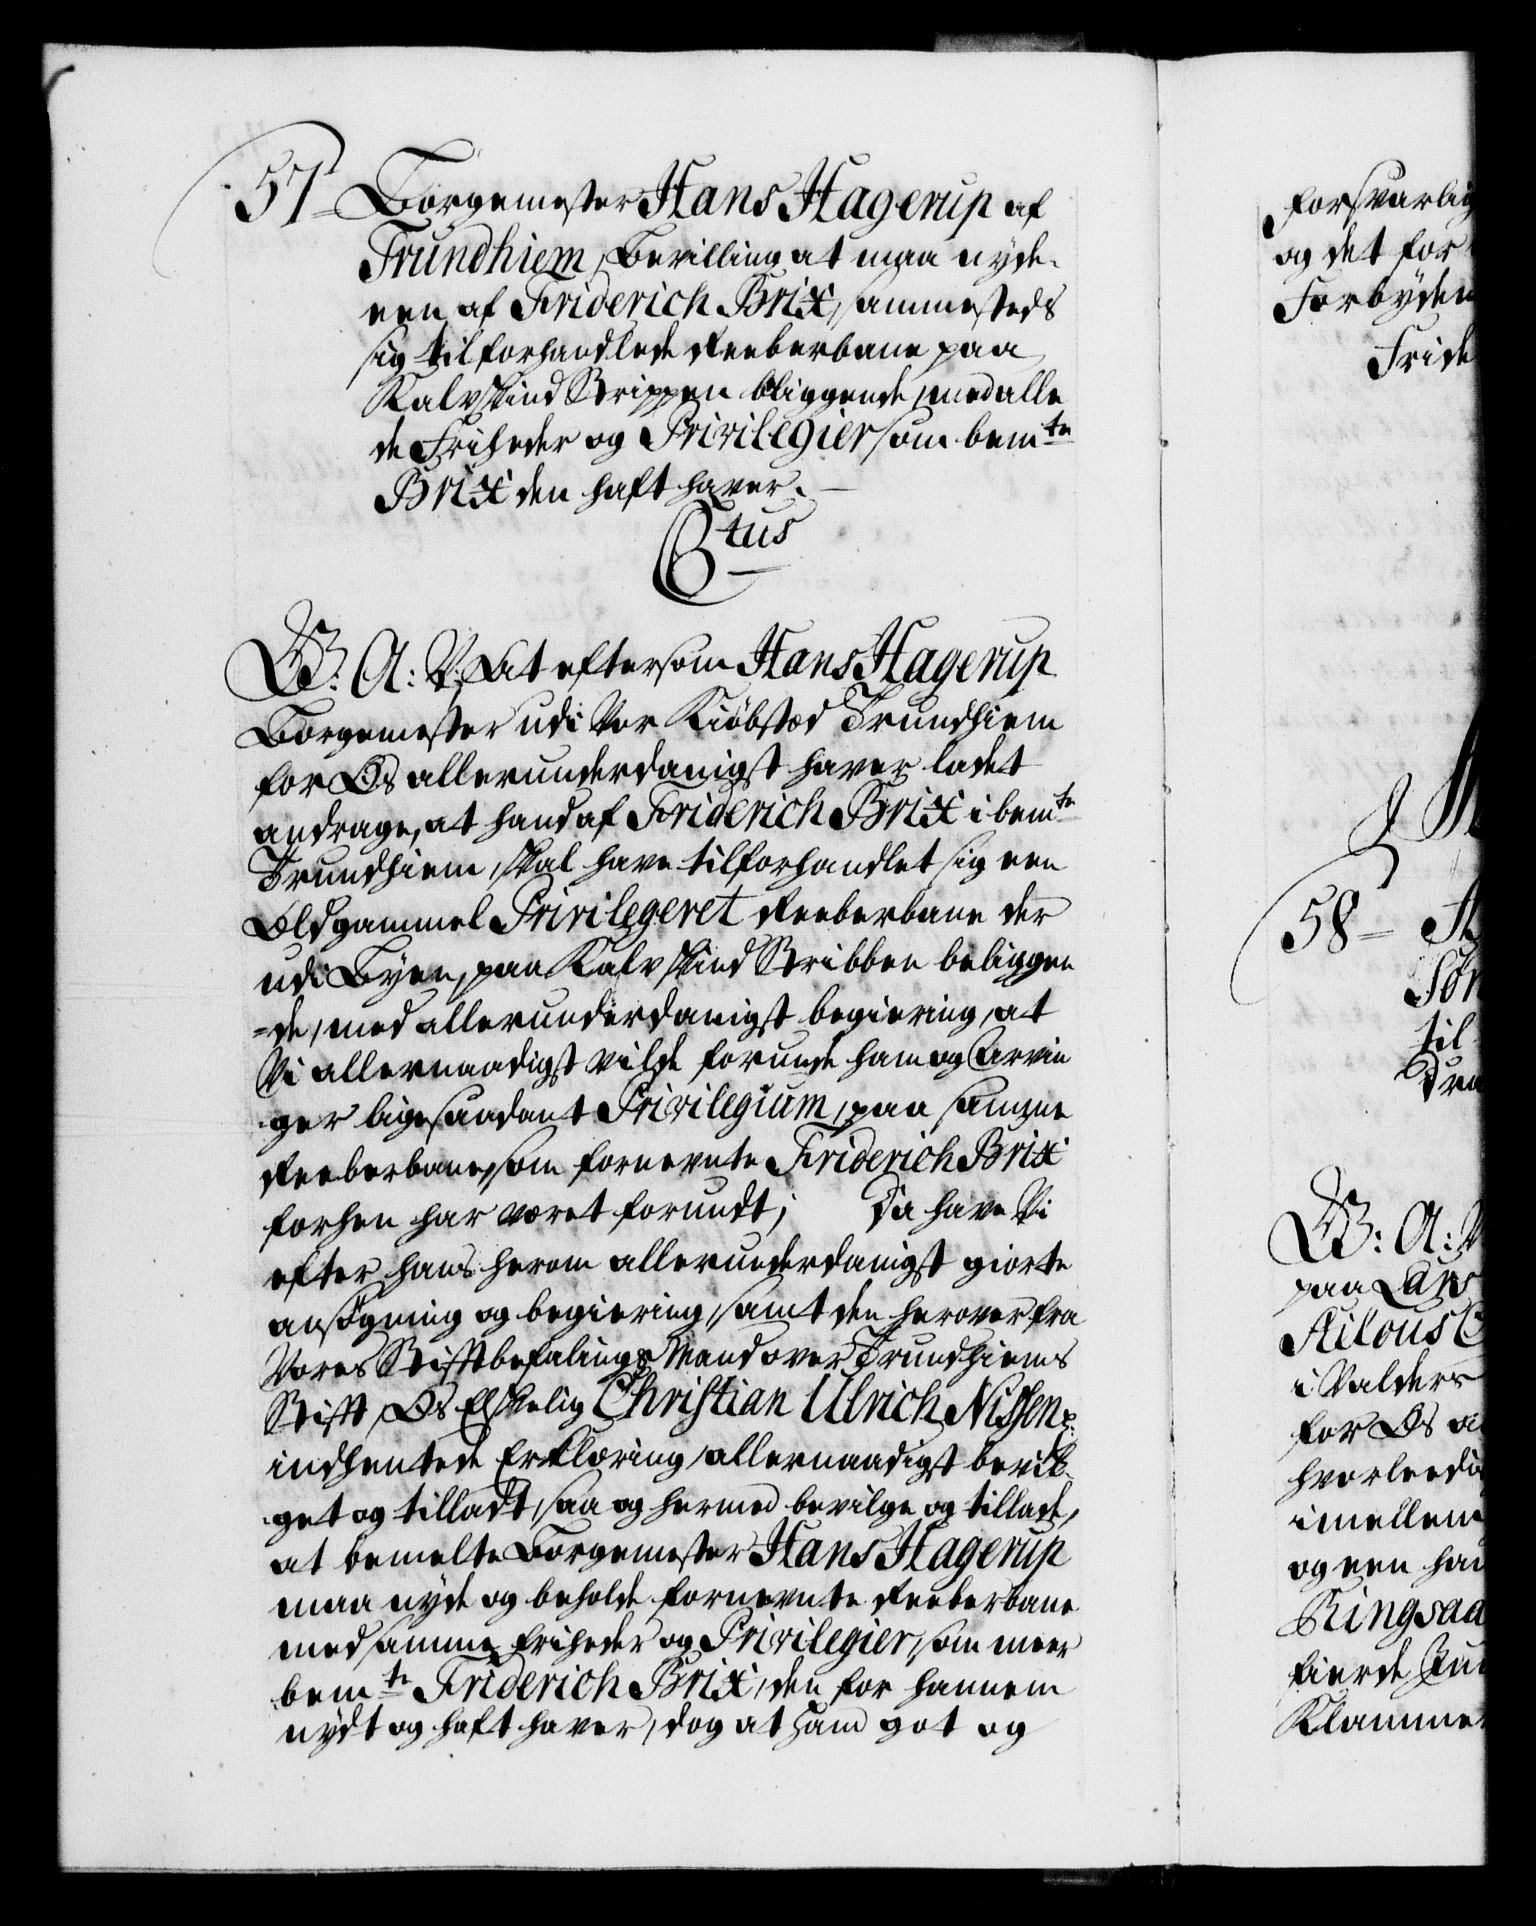 57 Borgemester Hans Hagerup af
Trundhiem, Bevilling at maa nyde
een af Friderich Brix, sammesteds
sig tilforhandlede Reeberbane paa
Kalvskind Strippen bliggende, med alle
de Friheder og Privilegier som bemte
Brix den haft haver.
C 6tus
G: A: V: At eftersom Hans Hagerup
Borgemester udi Vor Kiøbstæd Trundhiem
for Os allerunderdanigst haver ladet
andrage, at hand af Friderich Brix i bemte
Trundhiem, skal have tilforhandlet sig een
Oldgammel Privilegeret Reeberbane der
udi Byen, paa Kalvskind Stribben beliggen
=de, med allerunderdanigst begiering, at
Vi allernaadigst vilde forunde ham og Arvin
ger lige saadant Privilegium, paa samme
Reeberbane, som fornevnte Friderich Brix
forhen har været forundt; Da have Vi
efter hans herom allerunderdanigst giorte
ansøgning og begiering, samt den herover fra
Vores Stiftbefalings Mand over Trundhiems
Stift, Os Elskelig Christian Ulrich Nissen
indhentede Erklæring, allernaadigst bevil-
get og tilladt, saa og hermed bevilge og tillade,
at bemelte Borgemester Hans Hagerup
maa nyde og beholde fornevnte Reeberbane
med samme friheder og Privilegier, som meer
bemte Friderich Brix, den for hannem
nydt og haft haver, dog at hand got og
forsvarlig
og det for
Forbyden
Fride
58 =
Søn
til
G: A: V
paa Lars
Ailous
i Valders
for Os a
hvorleedi
imellem
og een han
Ringsa
fierde
Klamme